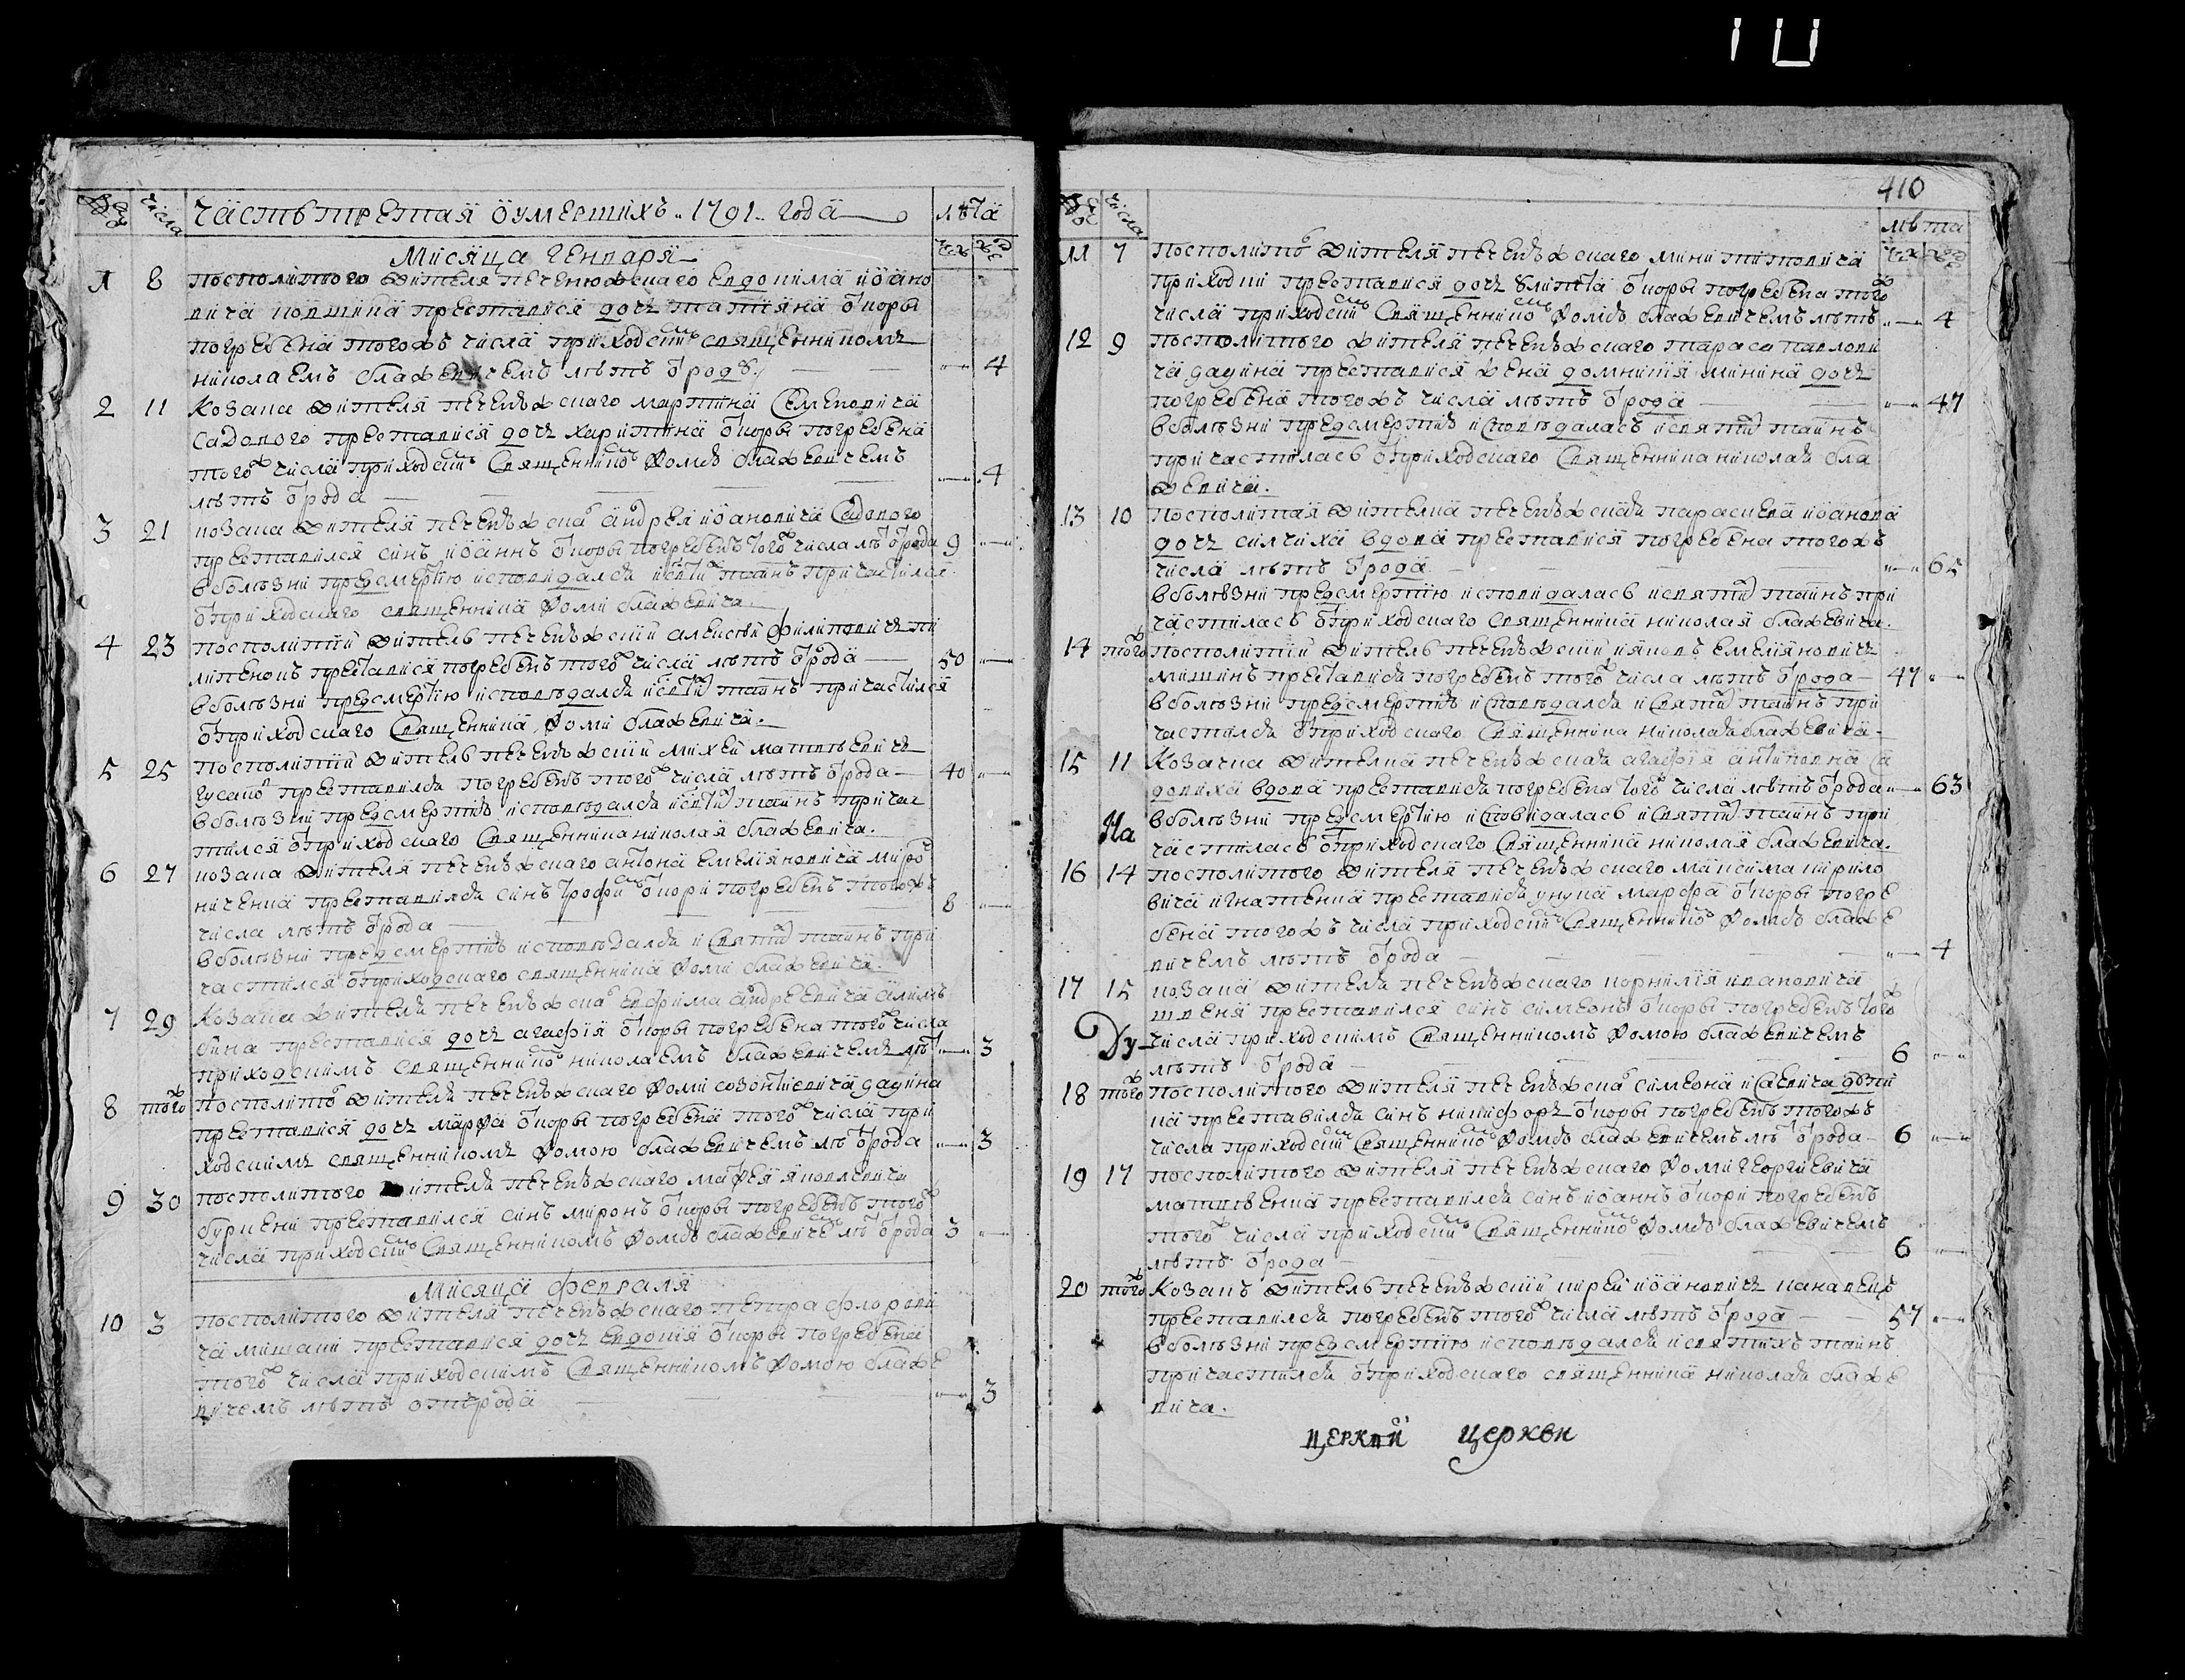 Часть третая о умершихъ 1791 года лѣта
числа
Мисяца генваря
1 8 посполитого жителя печенюжского евдокима иоано
вича ковшика преставися дочъ татияна о коры
погребена тогожъ числа приходскимъ священникомъ
николаемъ блажевичемъ лѣтъ о роду 4
2 11 козака жителя печенюжского мартина семеновича
садового преставися дочъ харитина о коры погребена
того числа приходским священником фомою блажевичемъ
лѣтъ о рода 4
3 21 козака жителя печенюжско андрея иоановича садового
преставился синъ иоаннъ о коры погребенъ того числа лѣ о рода 9
в болѣзни предсмертию исповидался и свти таинъ причастился
о приходского священника фоми блажевича
4 23 посполитий житель печенюжский алексѣй филиповичъ пи
липенокъ преставися погребенъ того числа лѣтъ о рода 50
в болѣзни предсмертию исповѣдался и свти таинъ причастился
о приходского священника фоми блажевича.
5 25 посполитий житель печенюжский михей матвѣевичъ
гусако преставился погребенъ того числа лѣтъ о рода 40
в болѣзни предсмертню исповѣдался и свти таинъ причас
тился о приходского священника николая блажевича.
6 27 козака жителя печенюжского антона емелияновича миро
ниченка преставился синъ трофим о кори погребенъ тогожъ
числа лѣтъ о рода 8
в болѣзни предсмертню исповѣдался и святи таинъ при
частился о приходского священника фоми блажевича
7 29 козака жителя печенюжско евфима андреевича алим
бика преставися дочъ агафия о коры погребена того числа
приходскимъ священником николаемъ блажевичемъ лѣ 3
8 того посполито жителя печенюжского фоми созонтиевича дадика
преставися дочъ марфа о коры погребена того числа при
ходскимъ священникомъ фомою блажевичемъ лѣ о рода 3
9 30 посполитого жителя печенюжского матфея яковлевича
буркени преставился синъ миронъ о коры погребенъ того
числа приходским священникомъ фомою блажевиче лѣ о рода 3
Мисяца февраля
10 3 посполитого жителя печенюжского петра флорови
ча мишаки преставися дочъ евдокия о коры погребена
того числа приходскимъ священникомъ фомою блаже
вичемъ лѣтъ отърода 3
410
числа лѣта
11 7 посполито жителя печенюжского мини титовича
приходки преставися дочъ улита о коры погребена того
числа приходским священником фомою блажевичемъ лѣтъ 4
12 9 посполитого жителя печенюжского тараса павлови
ча дадика преставися жена домникия минина дочъ
погребена тогожъ числа лѣтъ о рода 47
в болѣзни предсмертню исповѣдалась и святи таинъ
причастилась о приходского священника николая бла
жевича.
13 10 посполитая жителка печенюжская параскева иоанова
дочъ силчиха вдова преставися погребена тогожъ
числа лѣтъ о рода 65
в болѣзни предсмертию исповидалась и святи таинъ при
частилась о приходского священника николая блажевича.
14 того посполитий житель печенюжский яковъ емелияновичъ
мишинъ преставися погребенъ того числа лѣтъ о рода 47
в болѣзни предсмертню исповѣдался и святи таинъ при
частился о приходского священника николая блажевича.
15 11 козачка жителка печенюжская агафия антиповна са
довиха вдова преставися погребена того числа лѣтъ о рода 63
в болѣзни предсмертию исповидалась и святи таинъ при
На
частилась о приходского священника николая блажевича.
16 14 посполитого жителя печенюжского максима кирило
вича игнатенка преставися унука марфа о коры погре
бена тогожъ числа приходским священником фомою блаже
вичемъ лѣтъ о рода 4
17 15 козака жителя печенюжского корнилия ивановича
швеня преставился синъ симеонъ о коры погребенъ того
Ду-
числа приходскимъ священникомъ фомою блажевичемъ
лѣтъ о рода 6
18 того посполитого жителя печенюжско симеона исаевича
ка преставился синъ никифоръ о коры погребенъ тогожъ
числа приходским священником фомою блажевичемъ лѣ о рода 6
19 17 посполитого жителя печенюжского фоми георгиевича
матвѣенка преставился синъ иоаннъ о кори погребенъ
того числа приходским священником фомою блажевичемъ
лѣтъ о рода 6
20 того козакъ жителъ печенюжский кирей иоановичъ канавецъ
преставился погребенъ того числа лѣтъ о рода 57
в болѣзни предсмертию исповѣдался и святихъ таинъ
причастился о приходского священника николая блаже
вича.
церкви церкви